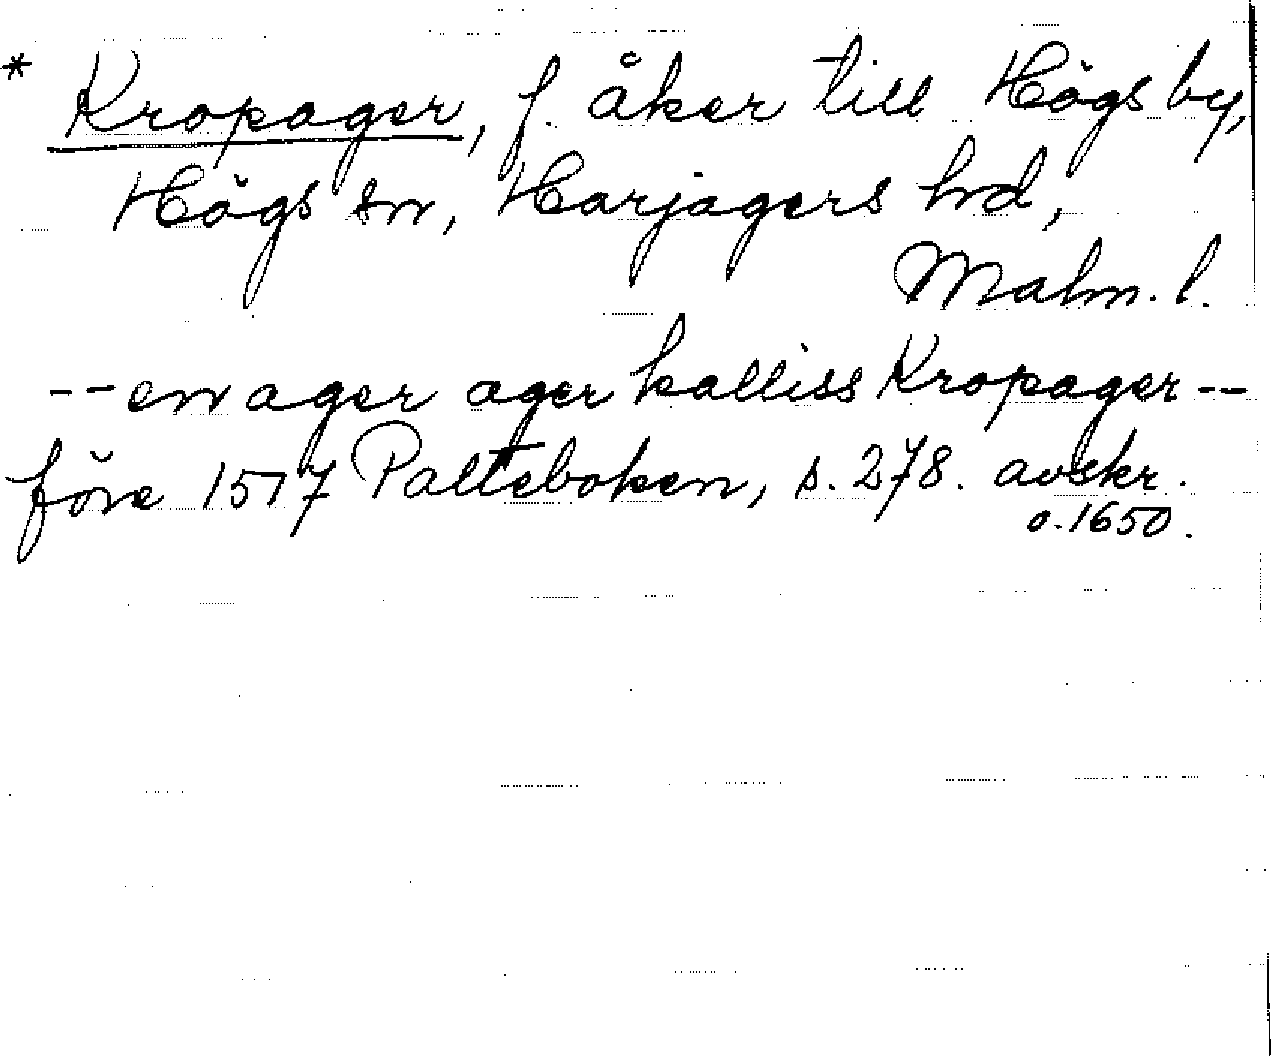 * Kropager, f. åker till Högs by,
Högs sn, Harjagers hd,
Malm. l.
-- en ager ager kalliss Kropager --
före 1517 Palteboken, s. 278. avskr.
o. 1650.